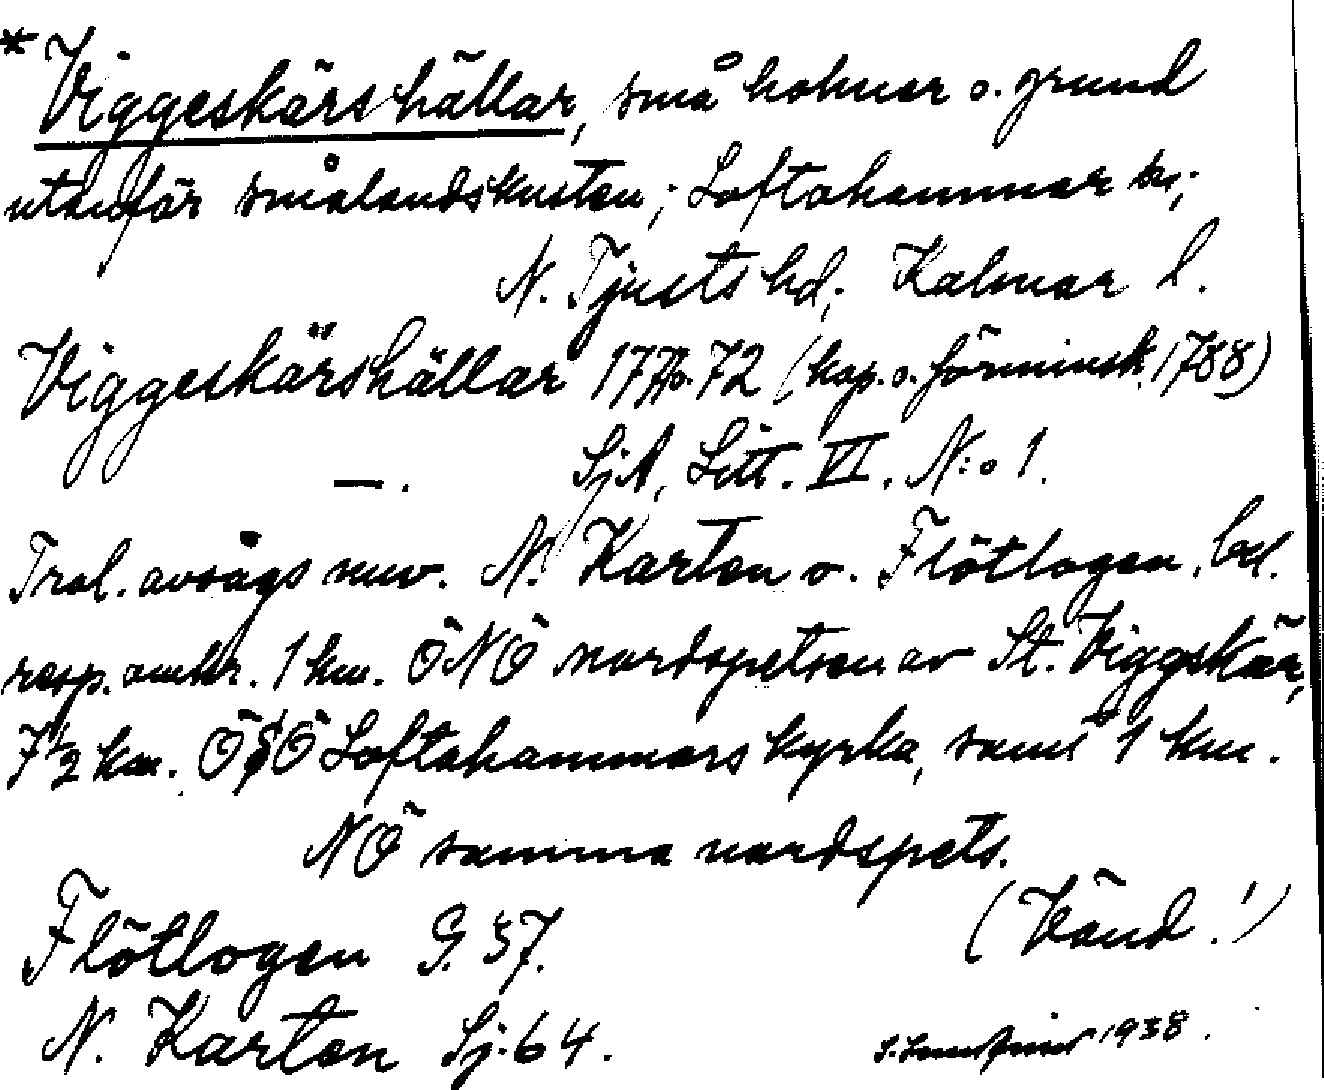 * Viggeskärshällar, små holmar o. grund
utanför smålandskusten; Loftahammar sn;
N. Tjusts hd; Kalmar l.
Viggeskärshällar 1770-72 (kop. o. förminsk. 1788)
—. SjA, Litt. VI. N:o 1.
Trol. avsågs nuv. N. Karten o. Flötlogen, bel.
resp. omkr. 1 km. ÖNÖ nordspetsen av St. Viggskär,
7 1/2 km. ÖSÖ Loftahammars kyrka, samt 1 km.
NÖ samma nordspets.
(Vänd!)
Flötlogen G. 57.
N. Karten Sj. 64.
1938.